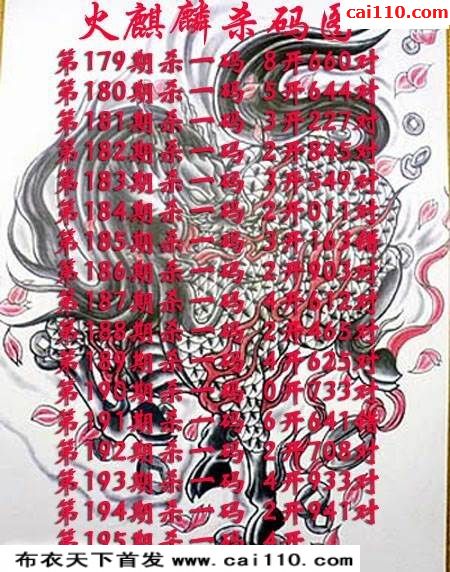 cai110.com
火麒麟杀码图
第179期杀一码 8开660对
第180期杀一码 5开644对
第181期杀一码 3开227对
第182期杀一码 2开845对
第183期杀一码 3开549对
第184期杀一码 2开011对
第185期杀一码 3开163错
第186期杀一码 2开903对
第187期杀一码 4开612对
第188期杀一码 2开465对
第189期杀一码 4开625对
第190期杀一码 0开733对
第191期杀一码 6开641错
第192期杀一码 2开708对
第193期杀一码 4开933对
第194期杀一码 2开941对
第195期杀一码 4开
布衣天下首发 www.cai110.com